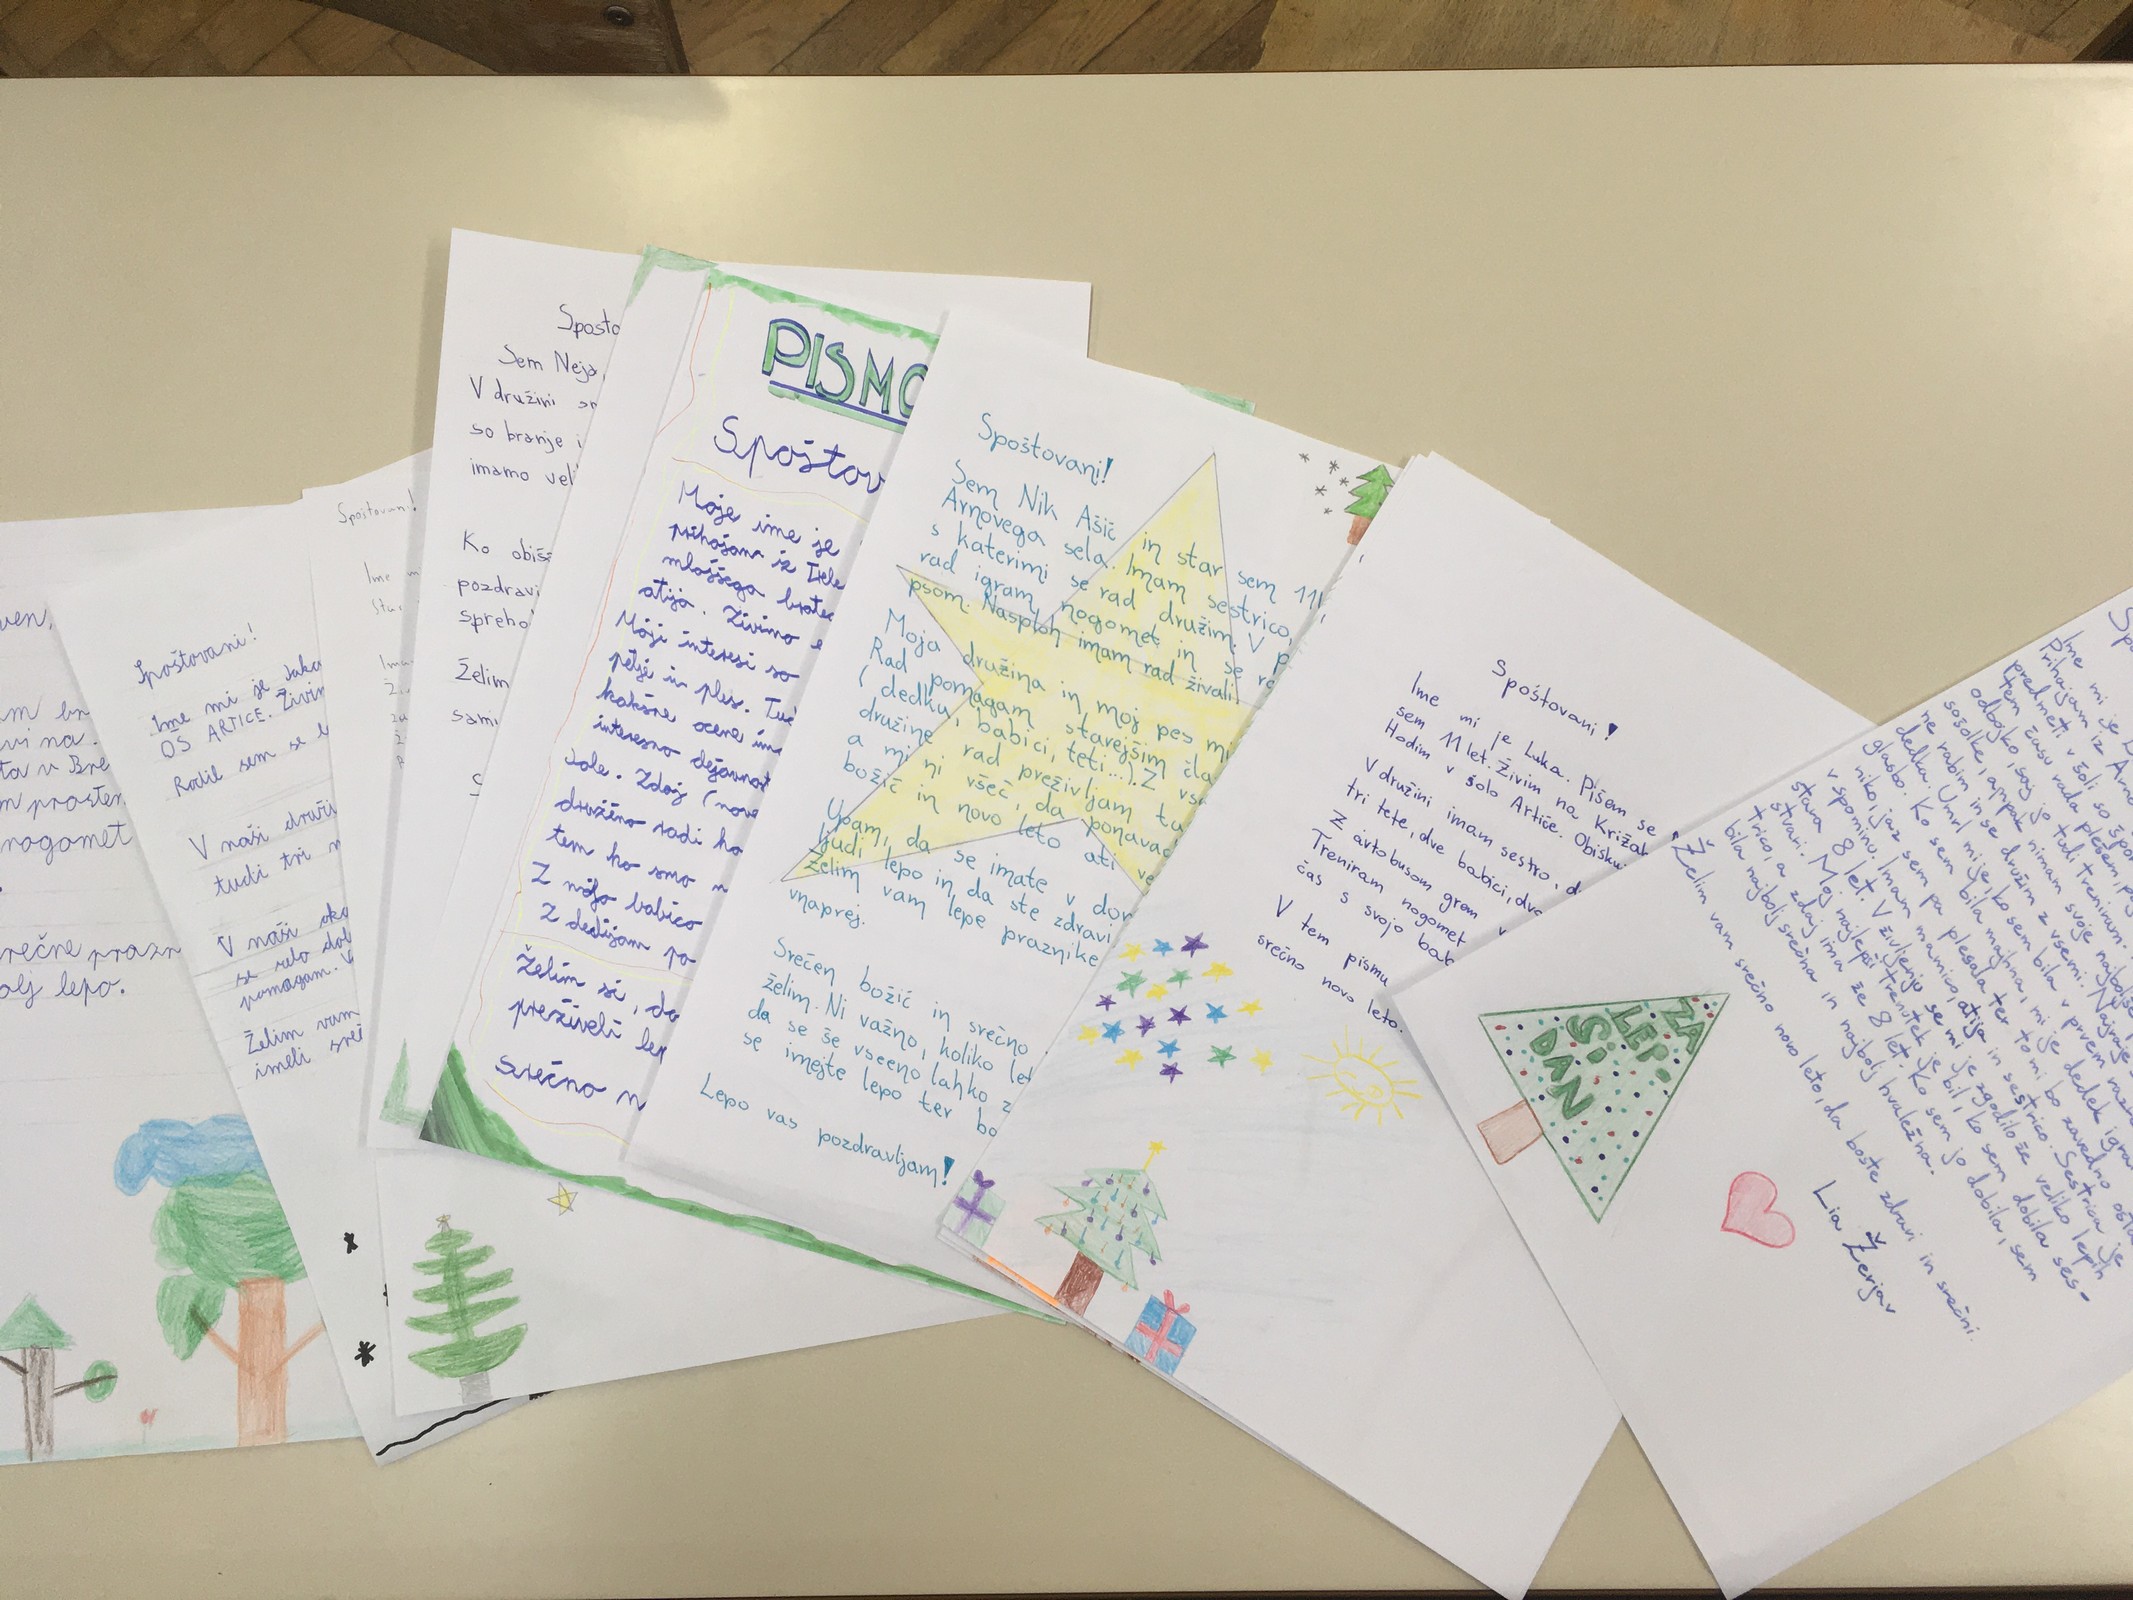 ven,
vi na.
ta v Bre
m prosten
nogomet
rečne prazn
olj lepo.
Spoštovani!
Ime mi je Jaka
OŠ ARTIČE. Živim
Rodil sem se
V naši druži
tudi tri
V naši
se zelo dob
pomagam.
Želim vam
imeli sre
Spoštovani!
Ime m
Star
Ima
Ži
Spošto
Sem Neja,
V družini sm
so branje i
imamo vel
Ko obiš
pozdravi
spreho
Želim
sami
S
PISMO
Spoštov
Moje ime je
prihajam iz
mlajšega brate
atija. Živimo
Moji interesi so
petje in ples.
kakšne ocene im
interesno dejavnost
šole. Zdaj (nove
družino radi
tem ko smo
Z mojo babico
Z dedijem po
Želim si, da
preživeli lep
Srečno n
Spoštovani!
Sem Nik Ašič in star sem 11
Arnovega sela. Imam sestrico,
s katerimi se rad družim. V p
rad igram nogomet in se
psom. Nasploh imam rad živali.
Moja družina in moj pes mi
Rad pomagam starejšim čla
(dedku, babici, teti...). Z vs
družine rad preživljam
a mi ni všeč, da ponavad
božič in novo leto ati
Upam, da se imate v dom
ljudi lepo in da ste zdravi
Želim vam lepe praznike
vnaprej.
Srečen božič in srečno
želim. Ni važno, koliko let
da se še vseeno lahko z
se imejte lepo ter bo
Lepo vas pozdravljam!
Spoštovani!
Ime mi je Luka. Pišem se
sem 11 let. Živim na Križah
Hodim v šolo Artiče. Obisku
V družini imam sestro,
tri tete, dve babici, dva
Z avtobusom grem v
Treniram nogomet
čas s svojo
V tem pismu
srečno novo leto.
ZA
LEP-
ŠI
DAN
Ime mi je
Prihajam iz Arno
predmeti v šoli so špor
tem času rada plešem,
odbojko, saj jo tudi treniram.
sošolke, ampak nimam svoje najboljše
ne rabim in se družim z vsemi. Najraje
dedka. Umrl mi je, ko sem bila v prvem razre
glasbo. Ko sem bila majhna, mi je dedek igra
niko, jaz sem pa plesala ter to mi bo zavedno osta
v spominu. Imam mamico, atija in sestrico. Sestrica je
stara 8 let. V življenju se mi je zgodilo že veliko lepih
stvari. Moj najlepši trenutek je bil, ko sem dobila ses-
trico, a zdaj ima že 8 let. Ko sem jo dobila, sem
bila najbolj srečna in najbolj hvaležna.
Želim vam srečno novo leto, da boste zdravi in srečni.
Lia Žerjav